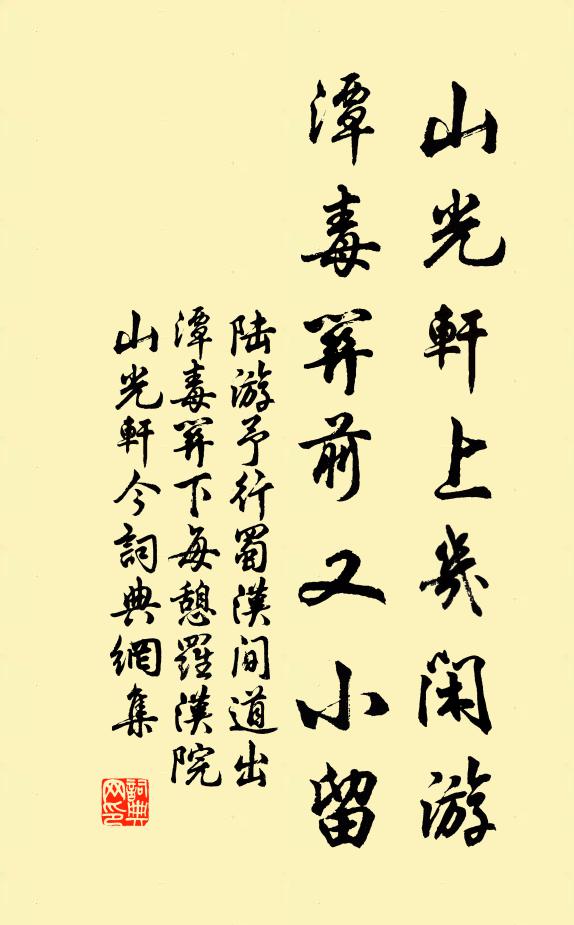 山光軒上幾閑游
潭毒關前又小留
陆游予行蜀漢间道出
潭毒關下每憩羅漢院
山光軒今詞典網集
詞典
网印